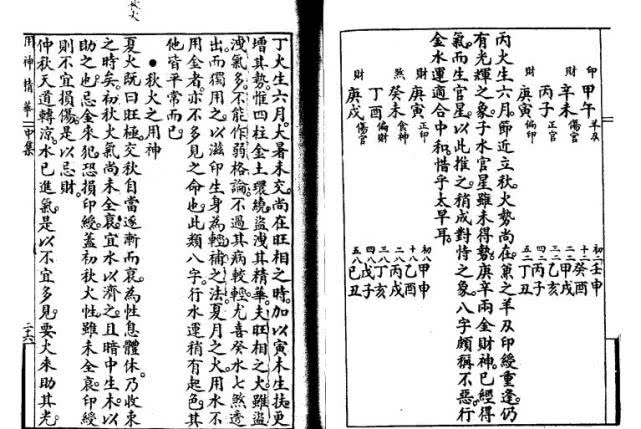 印 甲午 羊刃
財 辛未 傷官
丙子 正官
財 庚寅 偏印
初二壬申
十二癸酉
二二甲戌
三二乙亥
四二丙子
五二丁丑
丙火生六月。節近立秋火勢尚在。兼之羊刃印綬重逢。仍
有光輝之象。子水官星雖未得勢。庚辛兩金財神。已經得
氣。而生官星。以此推之。稍成對恃之象。八字頗稱不惡。行
金水運。適合中和。惜乎太早耳。
庚寅 正印
煞 癸未 食神
丁酉 偏財
財 庚戌 傷官
初八甲申
十八乙酉
二八丙戌
三八丁亥
四八戊子
五八己丑
丁火生六月。大暑未交。尚在旺相之時。加以寅木生扶。更
增其勢。惟四柱金土環繞。盜洩其精華。夫旺相之火。雖盜
洩氣多。不能作弱格論。不過其病較輕。尤喜癸水七煞透
出。而獨用之。以滋印生身。為輕補之法。夏月之火。用水不
用金者。亦不多見之命也。此類八字。行水運稍有起色。其
他皆平常而已。
●秋火之用神
夏火既曰旺極。交秋自當逐漸而衰。為性息體休。乃收束
之時矣。初秋火氣尚未全衰。宜水以濟之。且暗中生木。以
助之也。忌金來犯。恐損印綬。蓋初秋火性雖未全衰。印綬
則不宜損傷。是以忌財。
仲秋天道轉涼。水已進氣。是以不宜多見。要火來助其光。
用神精華 中集 二十六
秋火